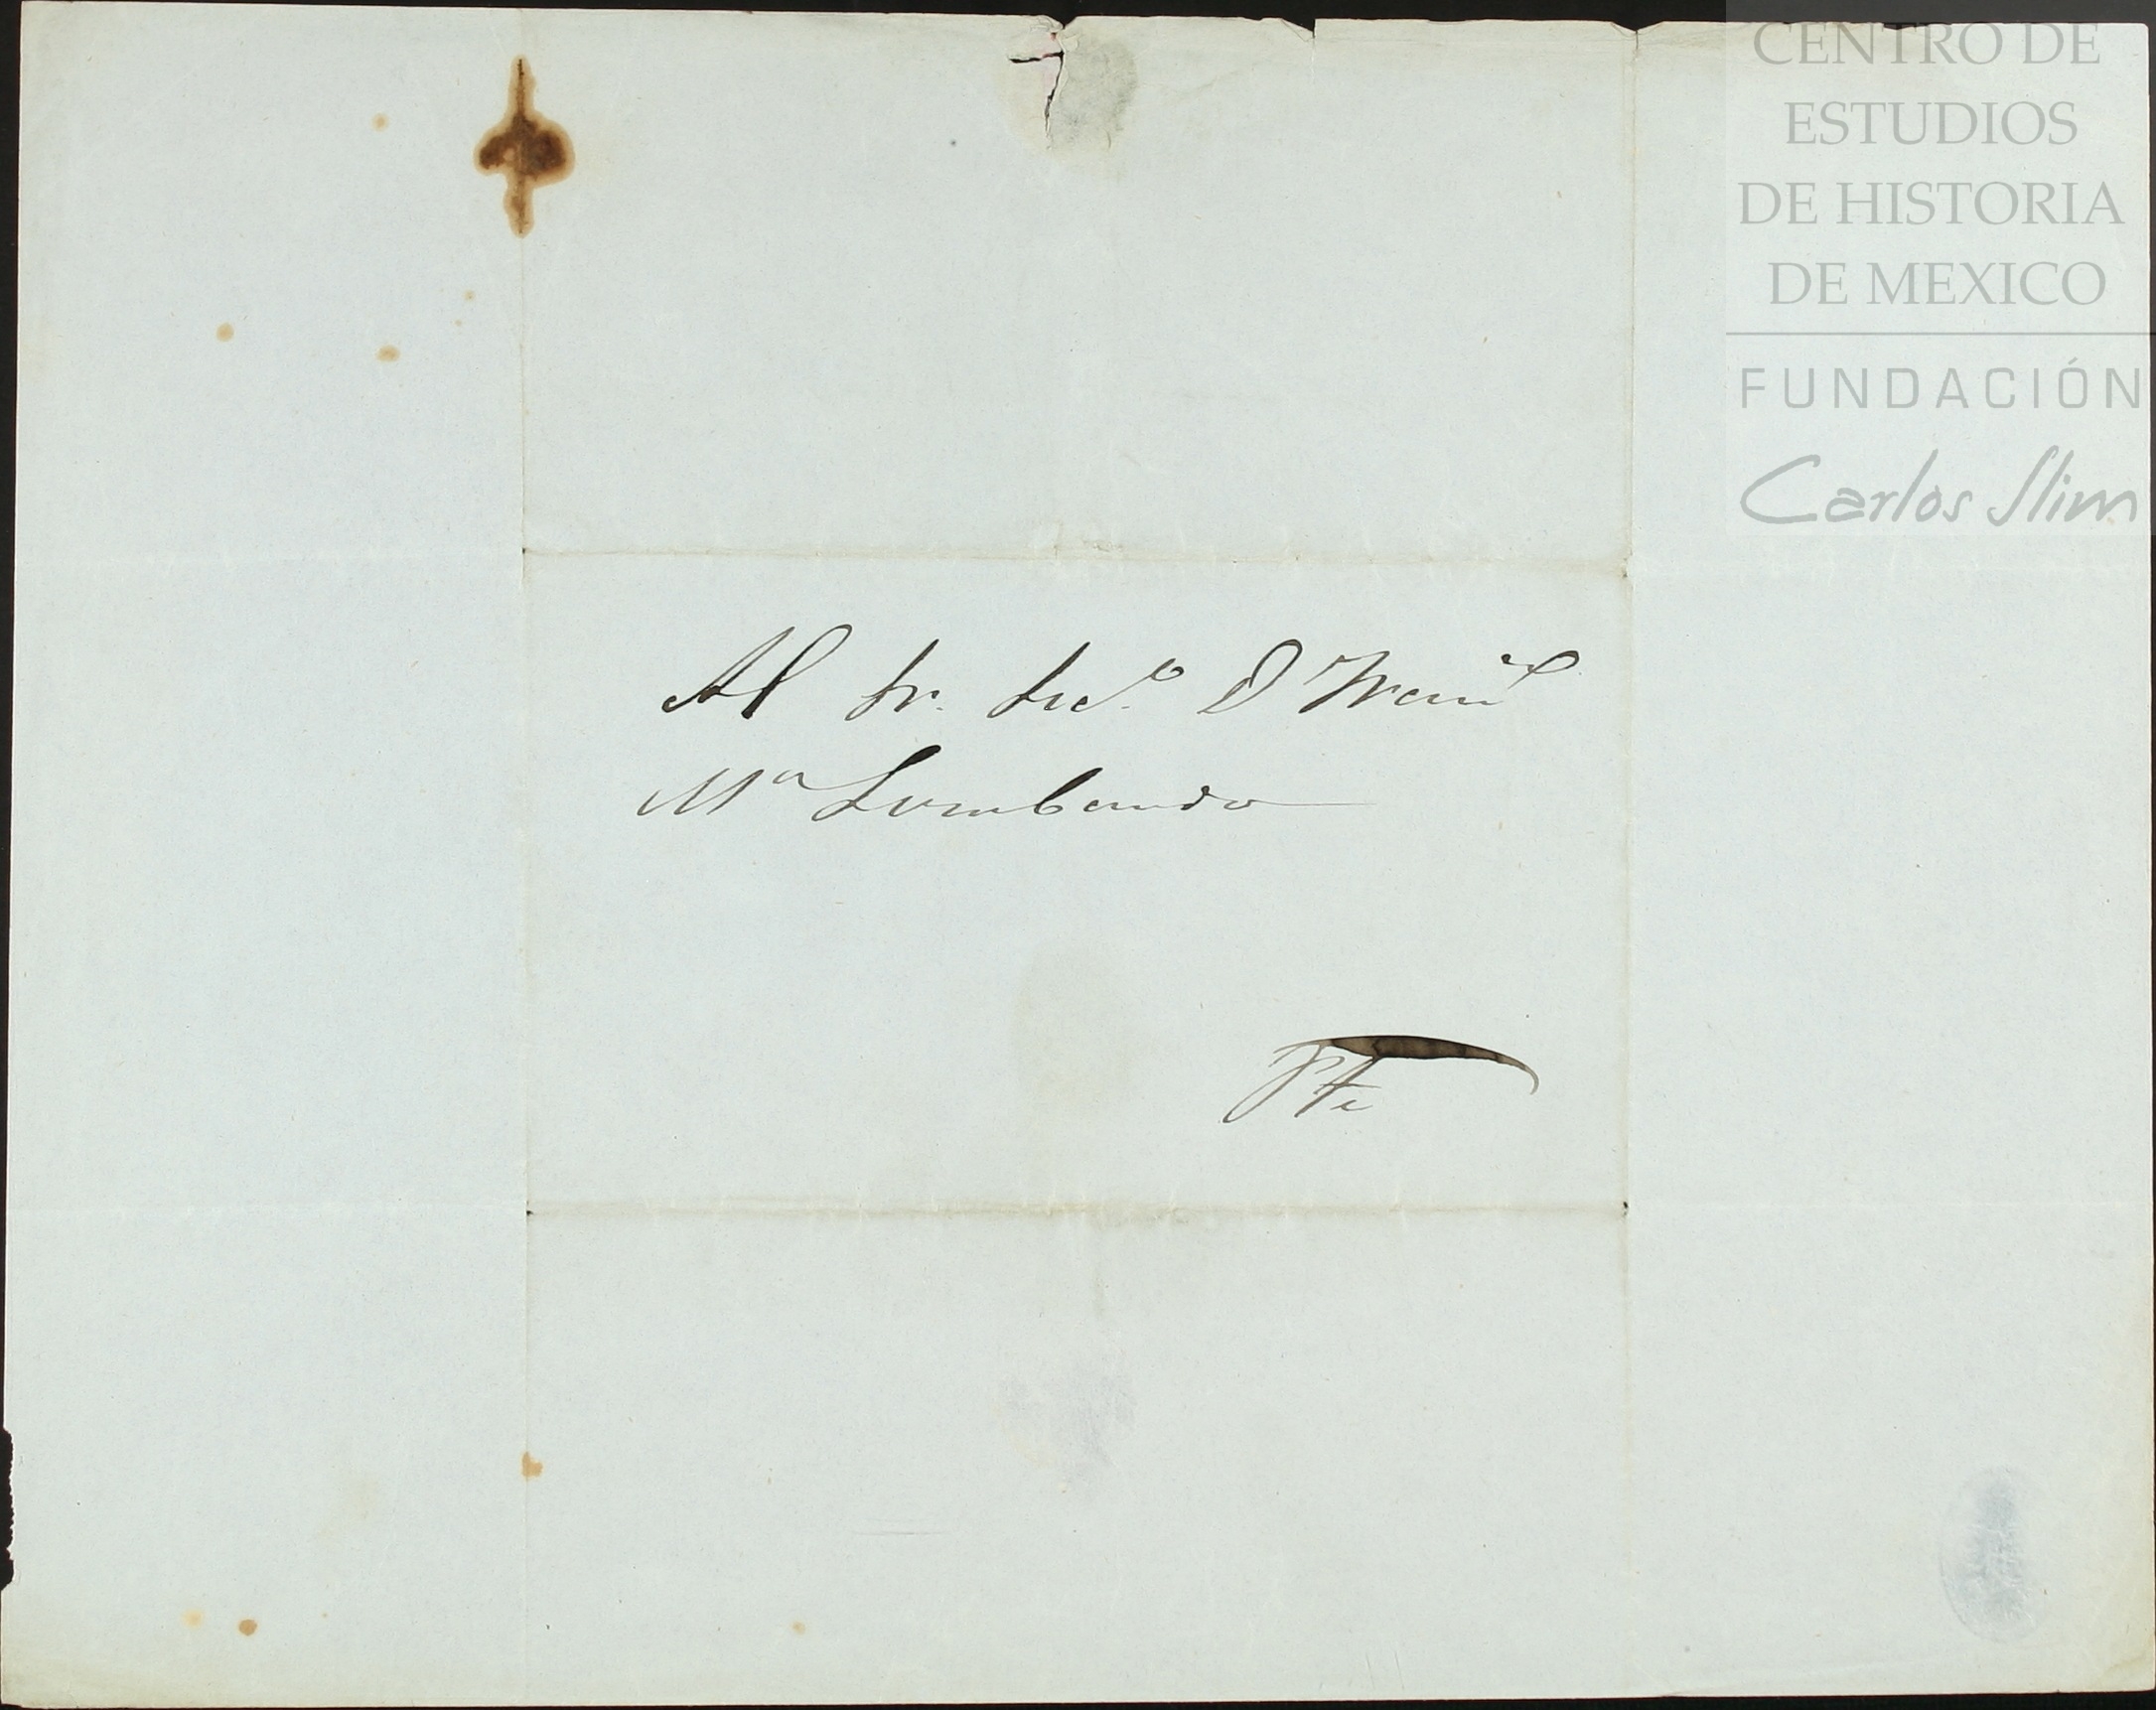 Al Sr. Lic.º D Man.el
M.a Lombardo
Pte
CENTRO DE
ESTUDIOS
DE HISTORIA
DE MEXICO
FUNDACIÓN
Carlos Slim